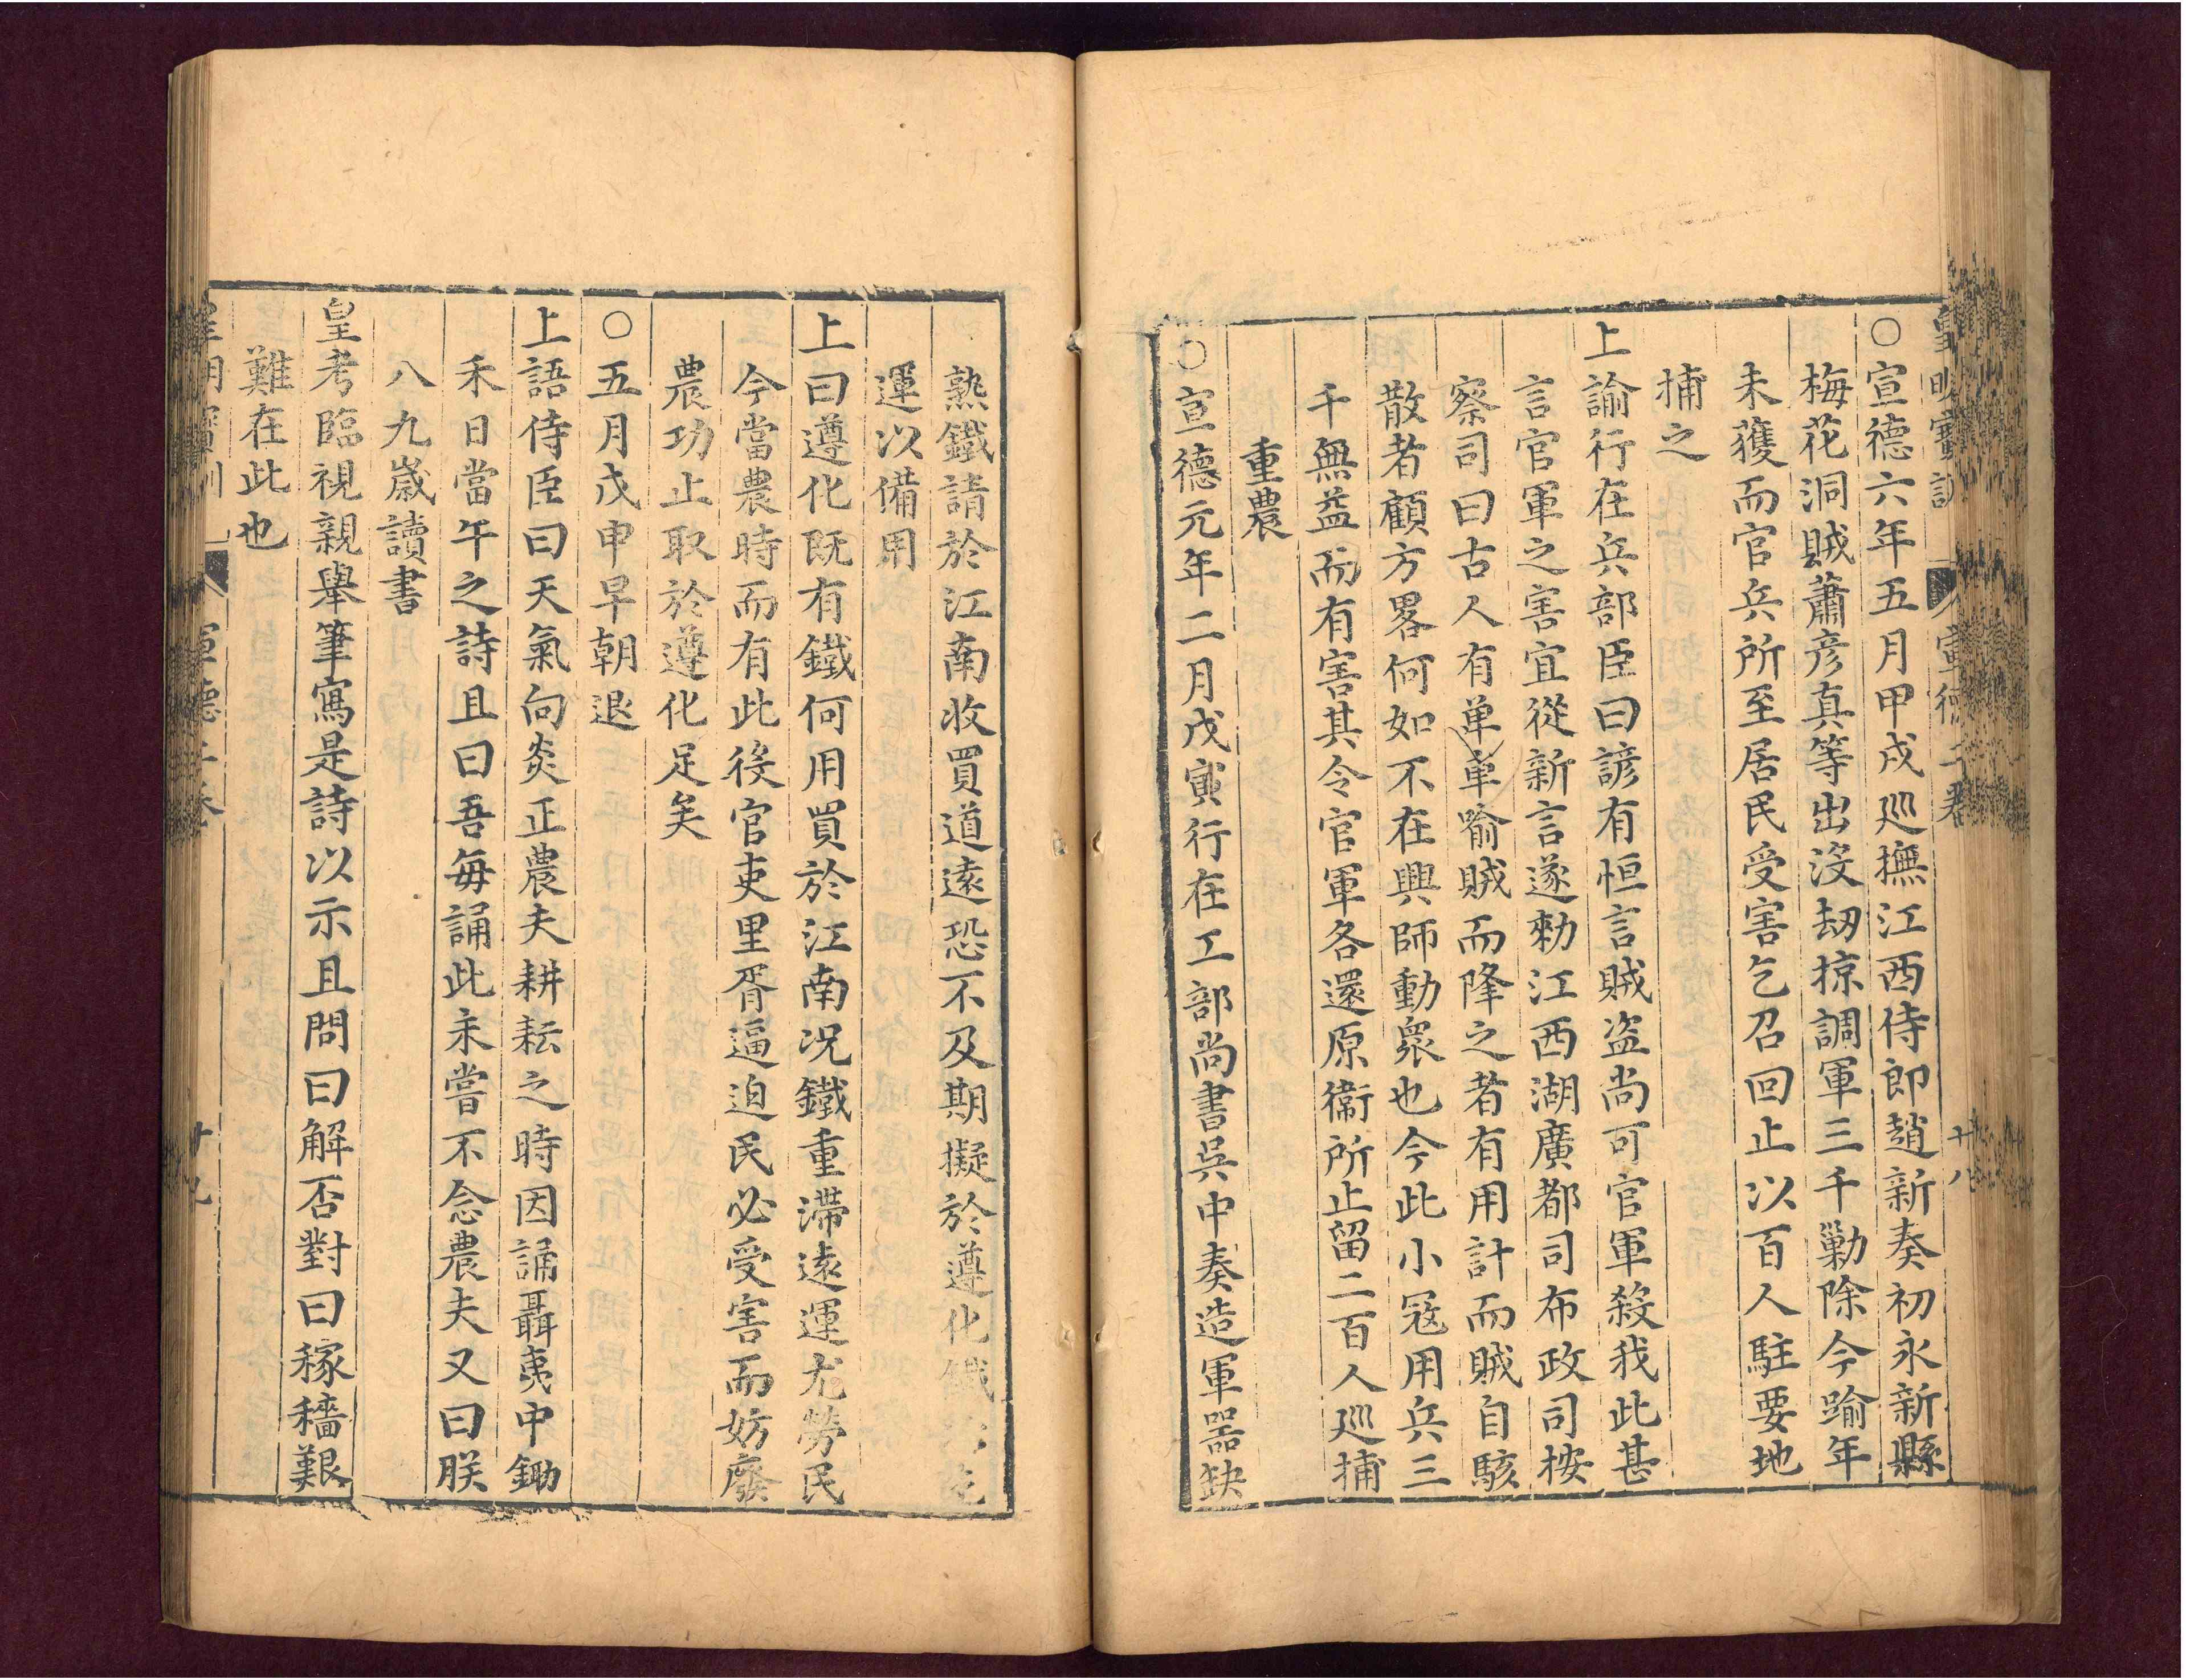 皇明寶訓 宣德二卷 十八
○宣德六年五月甲戌巡撫江西侍郎趙新奏初永新縣
梅花洞賊蕭彥真等出沒刼掠調軍三千勦除今踰年
未獲而官兵所至居民受害乞召回止以百人駐要地
捕之
上諭行在兵部臣曰諺有恒言賊盗尚可官軍殺我此甚
言官軍之害宜從新言遂勑江西湖廣都司布政司按
察司曰古人有单車喻賊而降之者有用計而賊自駭
散者顧方畧何如不在興師動衆也今此小冦用兵三
千無益而有害其令官軍各還原衞所止留二百人廵捕
重農
○宣德元年二月戊寅行在工部尚書吳中奏造軍器缺
熟鐵請於江南收買道遠恐不及期擬於遵化
運以備用
上曰遵化既有鐵何用買於江南况鐵重滯遠運尤勞民
今當農時而有此後官吏里胥逼迫民必受害而妨廢
農功止取於遵化足矣
○五月戊申早朝退
上語侍臣曰天氣向炎正農夫耕耘之時因誦聶夷中鋤
禾日當午之詩且曰吾每誦此未嘗不念農夫又曰朕
八九歲讀書
皇考臨視親舉筆寫是詩以示且問曰解否對曰稼穡艱
難在此也
皇明寶訓 宣德二卷 十九